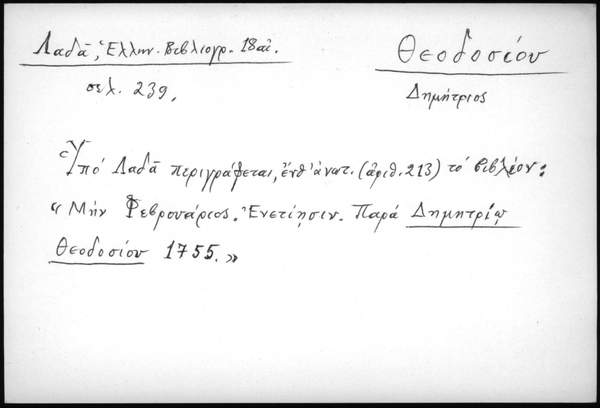 Λαδᾶ, Ἑλλην. Βιβλιογρ. 18 αἰ.
σελ. 239,
Θεοδοσίου
Δημήτριος
Ὑπό Λαδᾶ περιγράφεται, ἔνθ' ἀνωτ. (ἀριθ. 213) τό βιβλίον:
«Μήν Φεβρουάριος. Ἐνετίησιν. Παρά Δημητρίῳ
Θεοδοσίου 1755.»